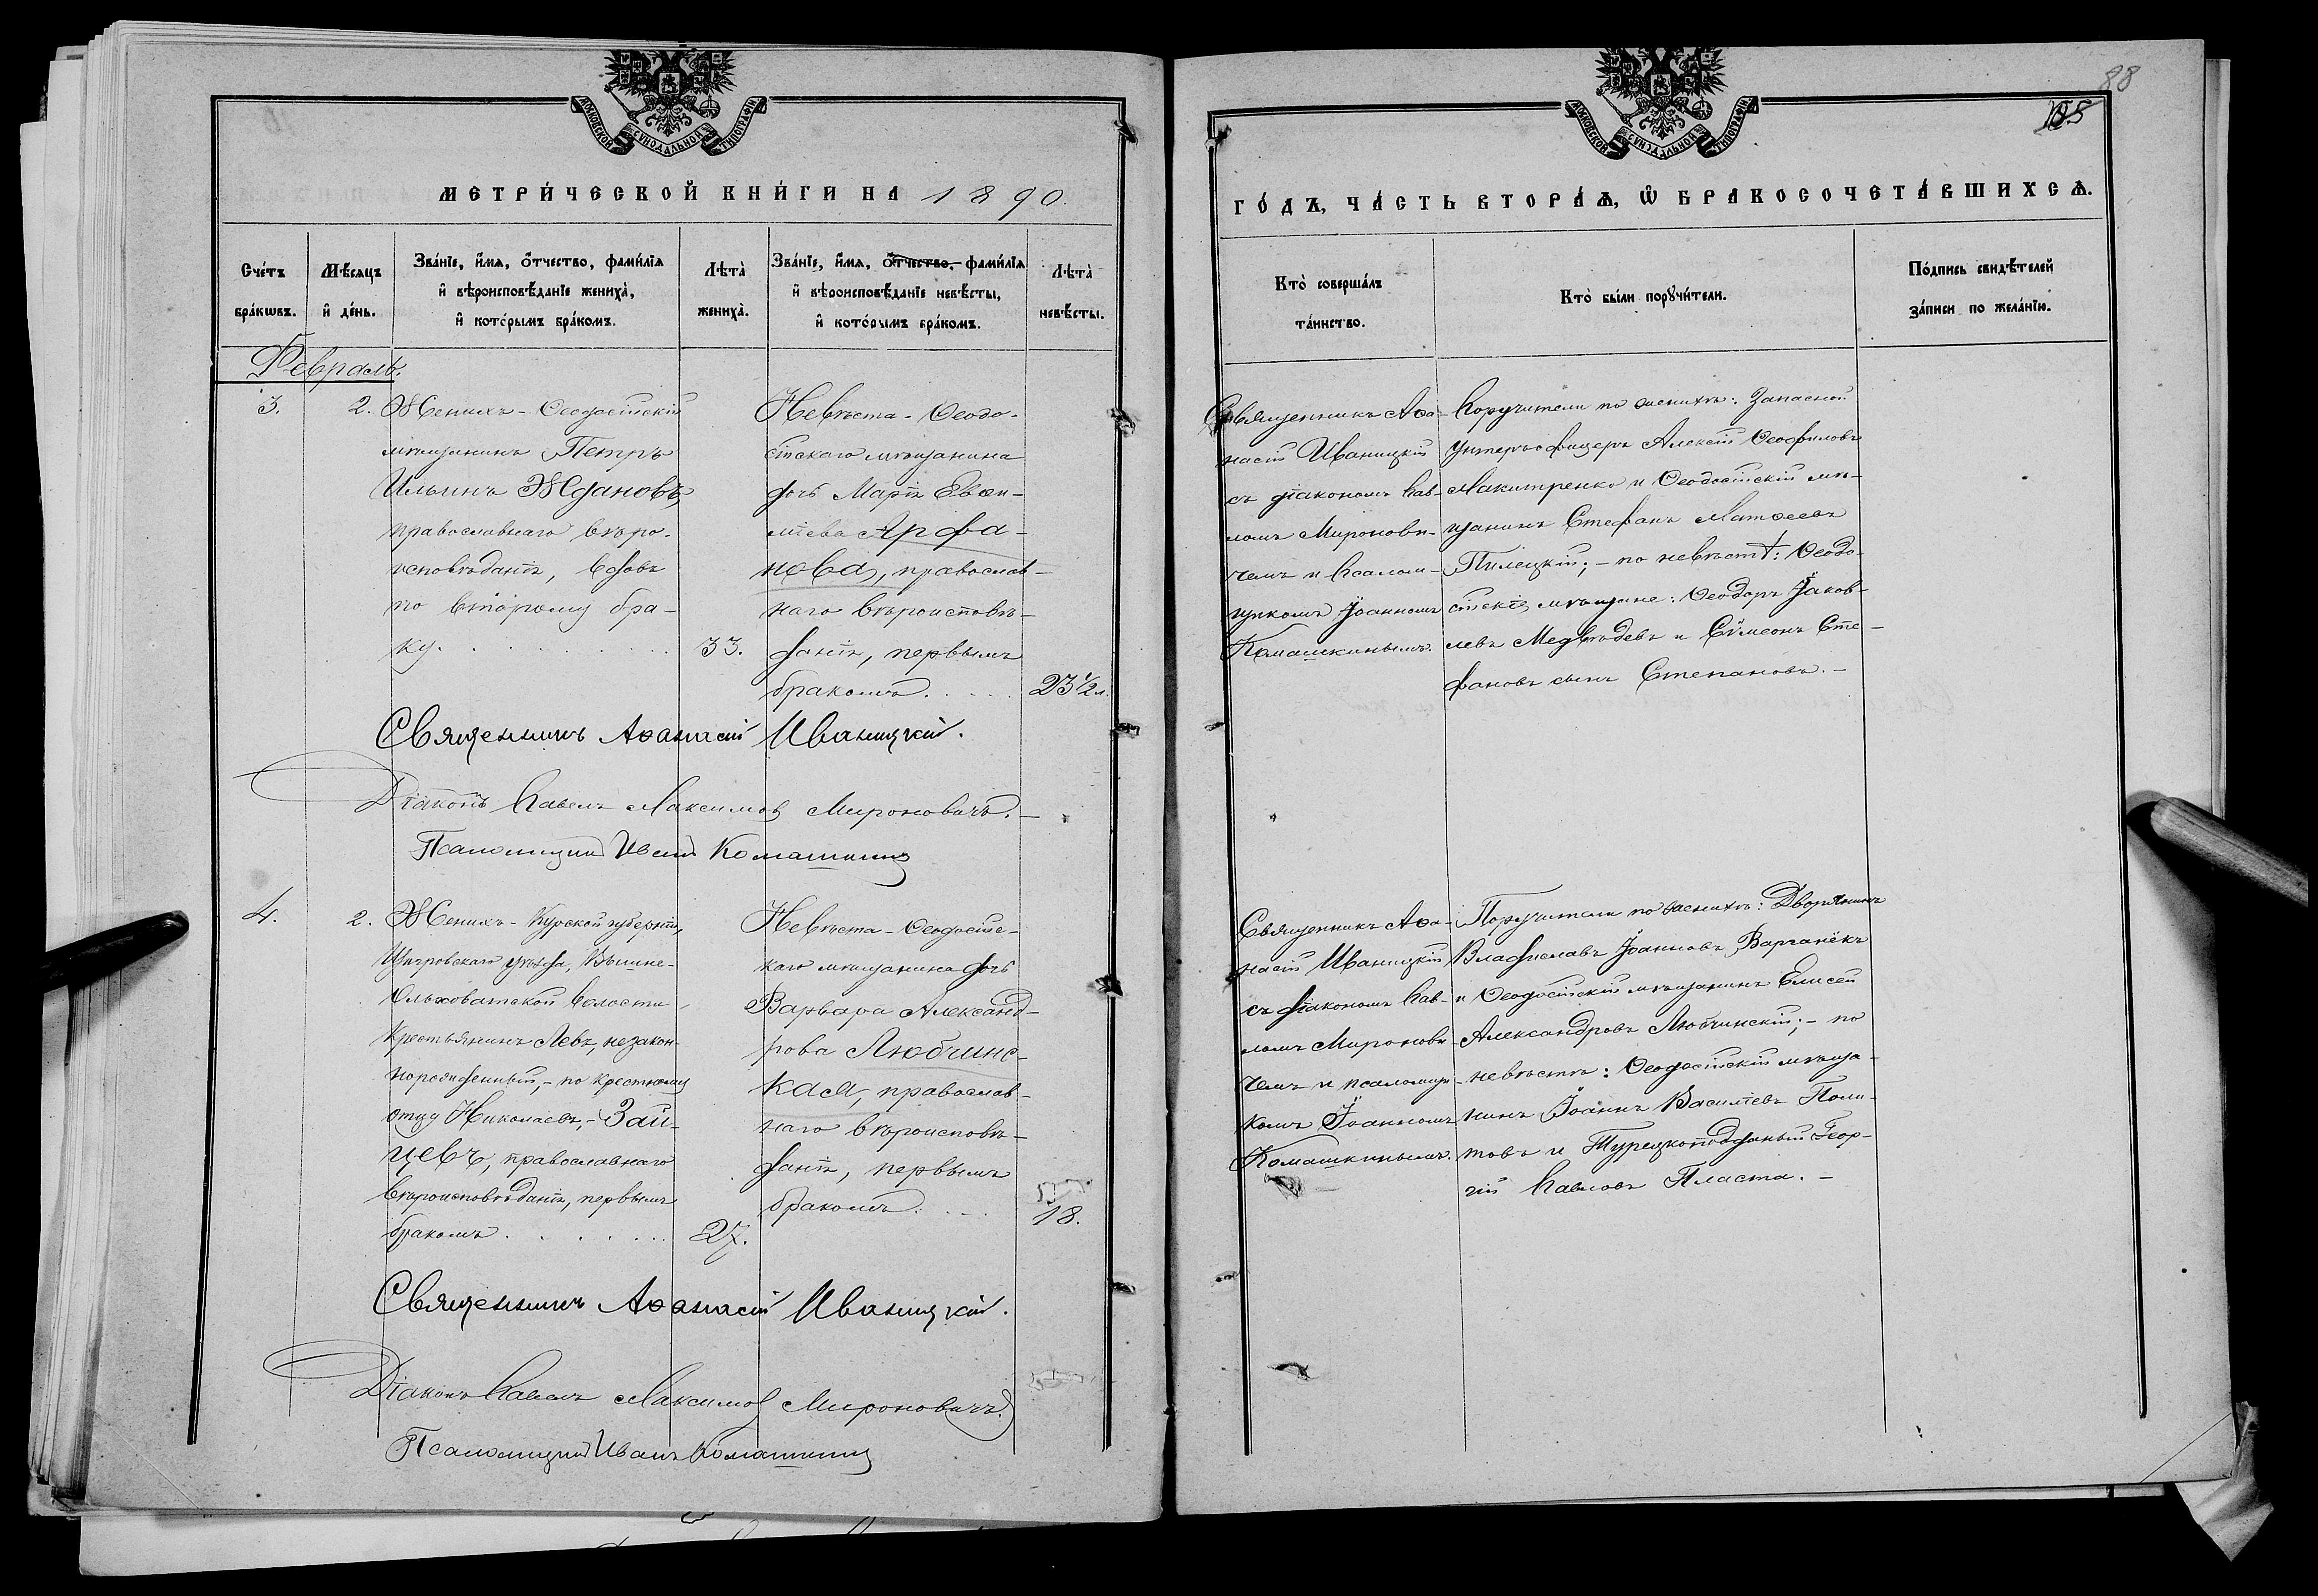 МОСКОВСКОЙ СѴНОДАЛЬНОЙ ТИПОГРАФІИ
МЕТРИ́ЧЕСКОЙ КНИ́ГИ НА 1890.
Сче́тъ бра́кωвъ.
Мѣ́сяцъ и҆ де́нь.
Зва́нїе, и҆́мя, ѻ҆́тчество, фами́лїя
и҆ вѣроисповѣ́данїе жениха̀,
и҆ кото́рымъ бра́комъ.
Лѣта̀ жениха̀.
Зва́нїе, и҆́мя, ѻ҆́тчество, фами́лїя
и҆ вѣроисповѣ́данїе невѣ́сты,
и҆ кото́рымъ бра́комъ.
Лѣта̀ невѣ́сты.
Февраль.
3.
2.
Женихъ - Ѳеодосійскій
мѣщанинъ Петръ
Ильинъ Ждановъ,
православнаго вѣро-
исповѣданія, вдовъ
по второму бра-
ку.
33.
Невѣста - Ѳеодо-
сійскаго мѣщанина
дочь Марія Евѳи-
міева Арфа-
нова, православ-
наго вѣроисповѣ-
данія, первымъ
бракомъ.
23 1/2 л.
Священникъ Аѳанасій Иваницкій.
Діаконъ Павелъ Максимов Мироновичъ.
Псаломщикъ Иванъ Комашкинъ
4.
2.
Женихъ - Курской губерніи,
Щигровскаго уѣзда, Вышне-
Ольховатской волости,
крестьянинъ Левъ, незакон-
норожденный, - по крестному
отцу Николаевъ, - Зай-
цевъ, православнаго
вѣроисповѣданія, первымъ
бракомъ
27.
Невѣста - Ѳеодосійс-
каго мѣщанина дочь
Варвара Александ-
рова Любчинс-
кая, православ-
наго вѣроисповѣ-
данія, первымъ
бракомъ.
18.
Священникъ Аѳанасій Иваницкій.
Діаконъ Павелъ Максимов Мироновичъ.
Псаломщикъ Иванъ Комашкинъ
88
МОСКОВСКОЙ СѴНОДАЛЬНОЙ ТИПОГРАФІИ
ГО́ДЪ, ЧА́СТЬ ВТОРА́Ѧ, Ѽ БРАКОСОЧЕТА́ВШИХСѦ.
Кто̀ соверша́лъ
та́инство.
Кто̀ бы́ли порꙋчи́тели.
По́дпись свидѣ́телей
за́писи по жела́нїю.
Священникъ Аѳа-
насій Иваницкій
съ діакономъ Пав-
ломъ Миронови-
чемъ и псалом-
щикомъ Іоанномъ
Комашкинымъ.
Поручители по женихѣ: Запасной
унтеръ-офицеръ Алексій Ѳеофиловъ
Макитренко и Ѳеодосійскій мѣ-
щанинъ Стефанъ Матѳеевъ
Пилецкій; - по невѣстѣ: Ѳеодо-
сійскіе мѣщане: Ѳеодоръ Іаков-
левъ Медвѣдевъ и Сѵмеонъ Сте-
фановъ сынъ Степановъ. -
Священникъ Аѳа-
насій Иваницкій
съ діакономъ Пав-
ломъ Миронови-
чемъ и псаломщи-
комъ Іоанномъ
Комашкинымъ.
Поручители по женихѣ: Дворянинъ
Владиславъ Іоанновъ Варганёкъ
и Ѳеодосійскій мѣщанинъ Елисей
Александровъ Любчинскій; - по
невѣстѣ: Ѳеодосійскій мѣща-
нинъ Іоаннъ Василіевъ Поли-
товъ и Турецкоподданый Геор-
гій Павловъ Пласта. -